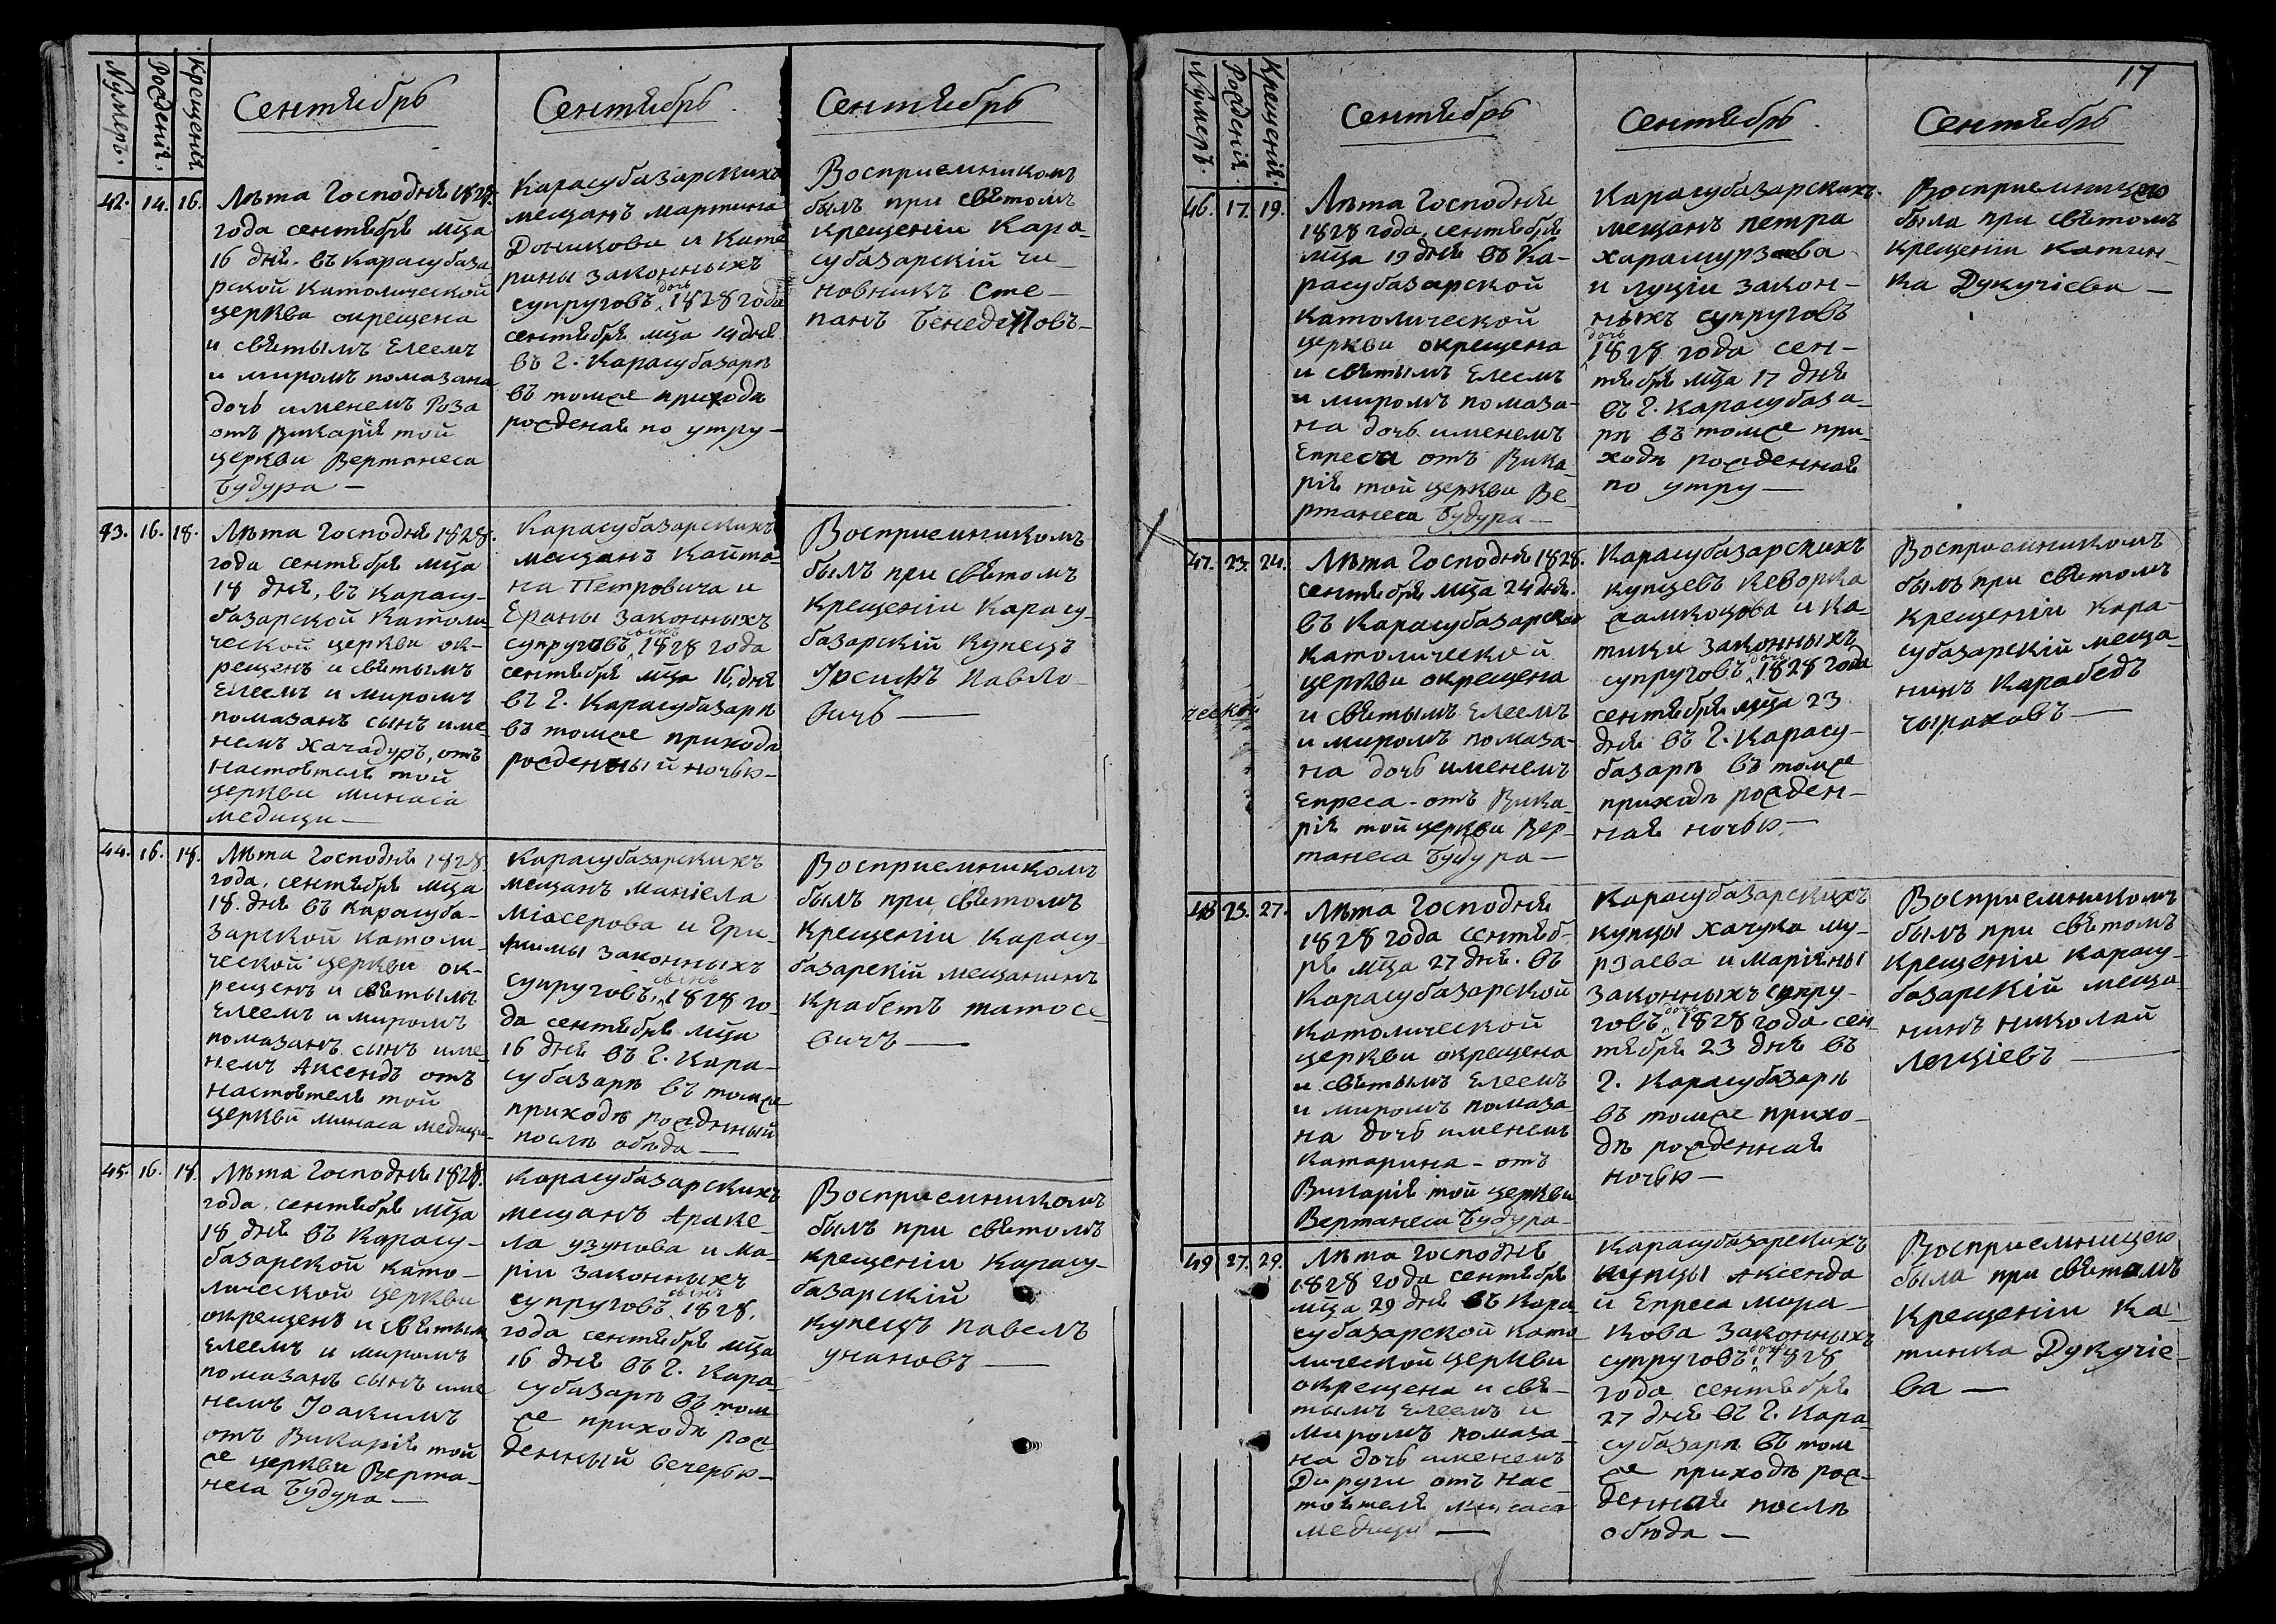 Нумеръ.
Рожденія.
Крещенія.
Сентябрь
Сентябрь.
Сентябрь
42. 14. 16.
Лѣта Господня 1828.
года сентября мца
16 дня. въ Карасубаза-
рской Католической
церкви окрещена
и святымъ Елеемъ
и миромъ помазана
дочь именемъ Роза
отъ Викарія той
церкви Вертанеса
Будура —
Карасубазарскихъ
мещанъ мартина
Доникова и Кате
рины законныхъ
супруговъ дочь 1828 года
сентября мца 14 дня
въ г. Карасубазарѣ
въ томже приходѣ
рожденая по утру —
Восприемникомъ
былъ при святомъ
крещеніи Кара-
субазарскій чи-
новникъ Сте-
панъ —
43. 16. 18.
Лѣта Господня 1828.
года сентября мца
18 дня, въ Карасу-
базарской Католи-
ческой церкви ок-
рещенъ и святымъ
Елеемъ и миромъ
помазанъ сынъ име
немъ хачадуръ, отъ
настоятеля той
церкви минаса
медици —
Карасубазарскихъ
мещанъ Кайта-
на Петровича и
Ераны законныхъ
супруговъ сынъ 1828 года
сентября мца 16, дня
въ г. Карасубазарѣ
въ томже приходѣ
рожденный ночью —
Восприемникомъ
былъ при святомъ
крещеніи Карасу-
базарскій Купецъ
Іосифъ Павло-
вичь —
44. 16. 18.
Лѣта Господня 1828.
года, сентября мца
18. дня въ Карасуба-
зарской Католи-
ческой церкви ок-
рещенъ и святымъ
Елеемъ и миромъ
помазанъ сынъ име-
немъ Аксендъ отъ
настоятеля той
церкви минаса медици-
Карасубазарскихъ
мещанъ маніела
Міасерова и Гри-
фимы законныхъ
супруговъ, сынъ 1828 го-
да сентября мца
16 дня въ г. Кара-
субазарѣ въ томже
приходѣ рожденый
послѣ обѣда —
Восприемникомъ
былъ при святомъ
крещеніи Карасу-
базарскій мещанинъ
Крабетъ татосе-
вичъ —
45. 16. 18.
Лѣта Господня 1828.
года, сентября мца
18 дня въ Карасу-
базарской като-
лической церкви
окрещенъ и святымъ
Елеемъ и миромъ
помазанъ сынъ име
немъ Іоакимъ
отъ Викарія той
же церкви Верта-
неса Будура —
Карасубазарскихъ
мещанъ Араке-
ла узунова и Ма-
ріи законныхъ
супруговъ сынъ 1828.
года сентября мца
16 дня въ г. Кара-
субазарѣ въ том
же приходѣ рож-
денный вечерью —
Восприемникомъ
былъ при святомъ
крещеніи Карасу-
базарскій
купецъ павелъ
унановъ —
17
Нумеръ.
Рожденія.
Крещенія.
Сентябрь
Сентябрь.
Сентябрь
46. 17. 19.
Лѣта Господня
1828 года, сентября
мца 19 дня въ Ка-
расубазарской
католической
церкви окрещена
и святымъ Елеемъ
и миромъ помаза-
на дочь именемъ
Епреса отъ Вика
рія той церкви Ве
ртанеса Будура —
Карасубазарскихъ.
мещанъ петра
харамурзова
и луціи закон-
ныхъ супруговъ
дочь
1828 года сен-
тября мца 17 дня
въ г. Карасубаза-
рѣ въ томже при-
ходѣ рожденная
по утру —
Восприемницею
была при святомъ
крещеніи Катин-
ка Дукучіева —
47. 23. 24.
Лѣта Господня 1828.
сентября мца 24 дня.
въ Карасубазарской
католической
церкви окрещена
ческой
и святымъ Елеемъ
и миромъ помаза-
на дочь именемъ
Епреса - отъ Вика-
рія той церкви Вер-
танеса Будура —
Карасубазарскихъ
купцевъ Кеворка
и Ка-
тики законныхъ
супруговъ дочь 1828 года
сентября мца 23
дня въ г. Карасу-
базарѣ въ томже
приходѣ рожден-
ная ночью —
Восприемникомъ
былъ при святомъ
крещеніи Кара-
субазарскій меща-
нинъ Карабедъ
чыраховъ —
48 23. 27.
Лѣта Господня
1828 года сентяб-
ря мца 27 дня. въ
Карасубазарской
католической
церкви окрещена
и святымъ Елеемъ
и миромъ помаза-
на дочь именемъ
Катарина - отъ
Викарія той церкви
Вертанеса Будура —
Карасубазарскихъ
купцы хачука му-
рзаева и Маріяны
законныхъ супру-
говъ дочь 1828 года сен-
тября 23 дня въ
г. Карасубазарѣ
въ томже прихо-
дѣ рожденная
ночью —
Восприемникомъ
былъ при святомъ
крещеніи Карасу-
базарскій меща-
нинъ николай
—
49 27. 29.
Лѣта Господня
1828 года сентября
мца 29 дня въ Кара
субазарской Като-
лической церкви
окрещена и свя-
тымъ Елеемъ и
миромъ помаза-
на дочь именемъ
Даруги отъ нас-
тоятеля минаса
медици —
Карасубазарскихъ
купцы Аксенда
и Епреса мора-
кова законныхъ
супруговъ, дочь 1828
года сентября
27 дня въ г. Кара
субазарѣ въ том
же приходѣ рож-
денная послѣ
обѣда —
Восприемницею
была при святомъ
крещеніи Ка-
тинка Дукучіе-
ва —